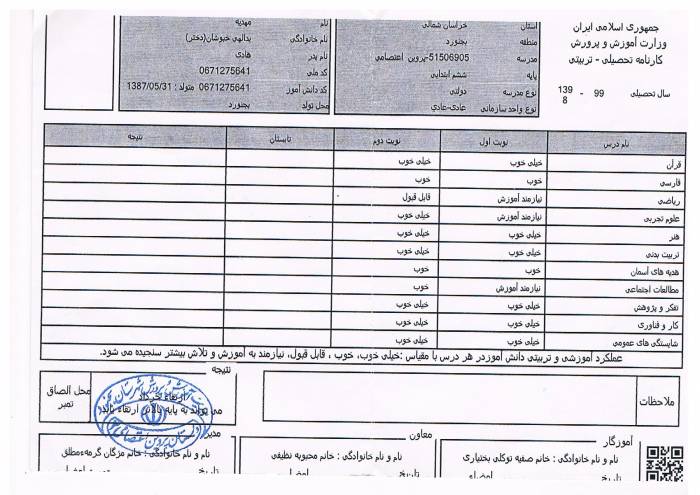 جمهوری اسلامی ایران
وزارت آموزش و پرورش
کارنامه تحصیلی - تربیتی
سال تحصیلی 99 - 1398
استان خراسان شمالی
منطقه بجنورد
مدرسه 51506905-پروین اعتصامی
پایه ششم ابتدایی
نوع مدرسه دولتی
نوع واحد سازمانی عادی-عادی
نام مهدیه
نام خانوادگی یدالهی خبوشان(دختر)
نام پدر هادی
کد ملی 0671275641
کد دانش آموز 0671275641 متولد : 1387/05/31
محل تولد بجنورد
نام درس نوبت اول نوبت دوم تابستان نتیجه
قرآن خیلی خوب خیلی خوب
فارسی خوب خوب
ریاضی نیازمند آموزش قابل قبول
علوم تجربی نیازمند آموزش خوب
هنر خیلی خوب خیلی خوب
تربیت بدنی خیلی خوب خیلی خوب
هدیه های آسمان خوب خوب
مطالعات اجتماعی نیازمند آموزش خوب
تفکر و پژوهش خیلی خوب خیلی خوب
کار و فناوری خیلی خوب خیلی خوب
شایستگی های عمومی خیلی خوب خیلی خوب
عملکرد آموزشی و تربیتی دانش آموزدر هر درس با مقیاس :خیلی خوب، خوب ، قابل قبول، نیازمند به آموزش و تلاش بیشتر سنجیده می شود.
ملاحظات
نتیجه
ارتقاء خرداد
می تواند به پایه بالاتر ارتقاء یابد.
محل الصاق
تمبر
آموزگار
نام و نام خانوادگی : خانم صفیه توکلی بختیاری
تاریخ امضاء
معاون
نام و نام خانوادگی : خانم محبوبه نظیفی
تاریخ امضاء
مدیر
نام و نام خانوادگی : خانم مژگان گرمه‌ءمطلق
تاریخ